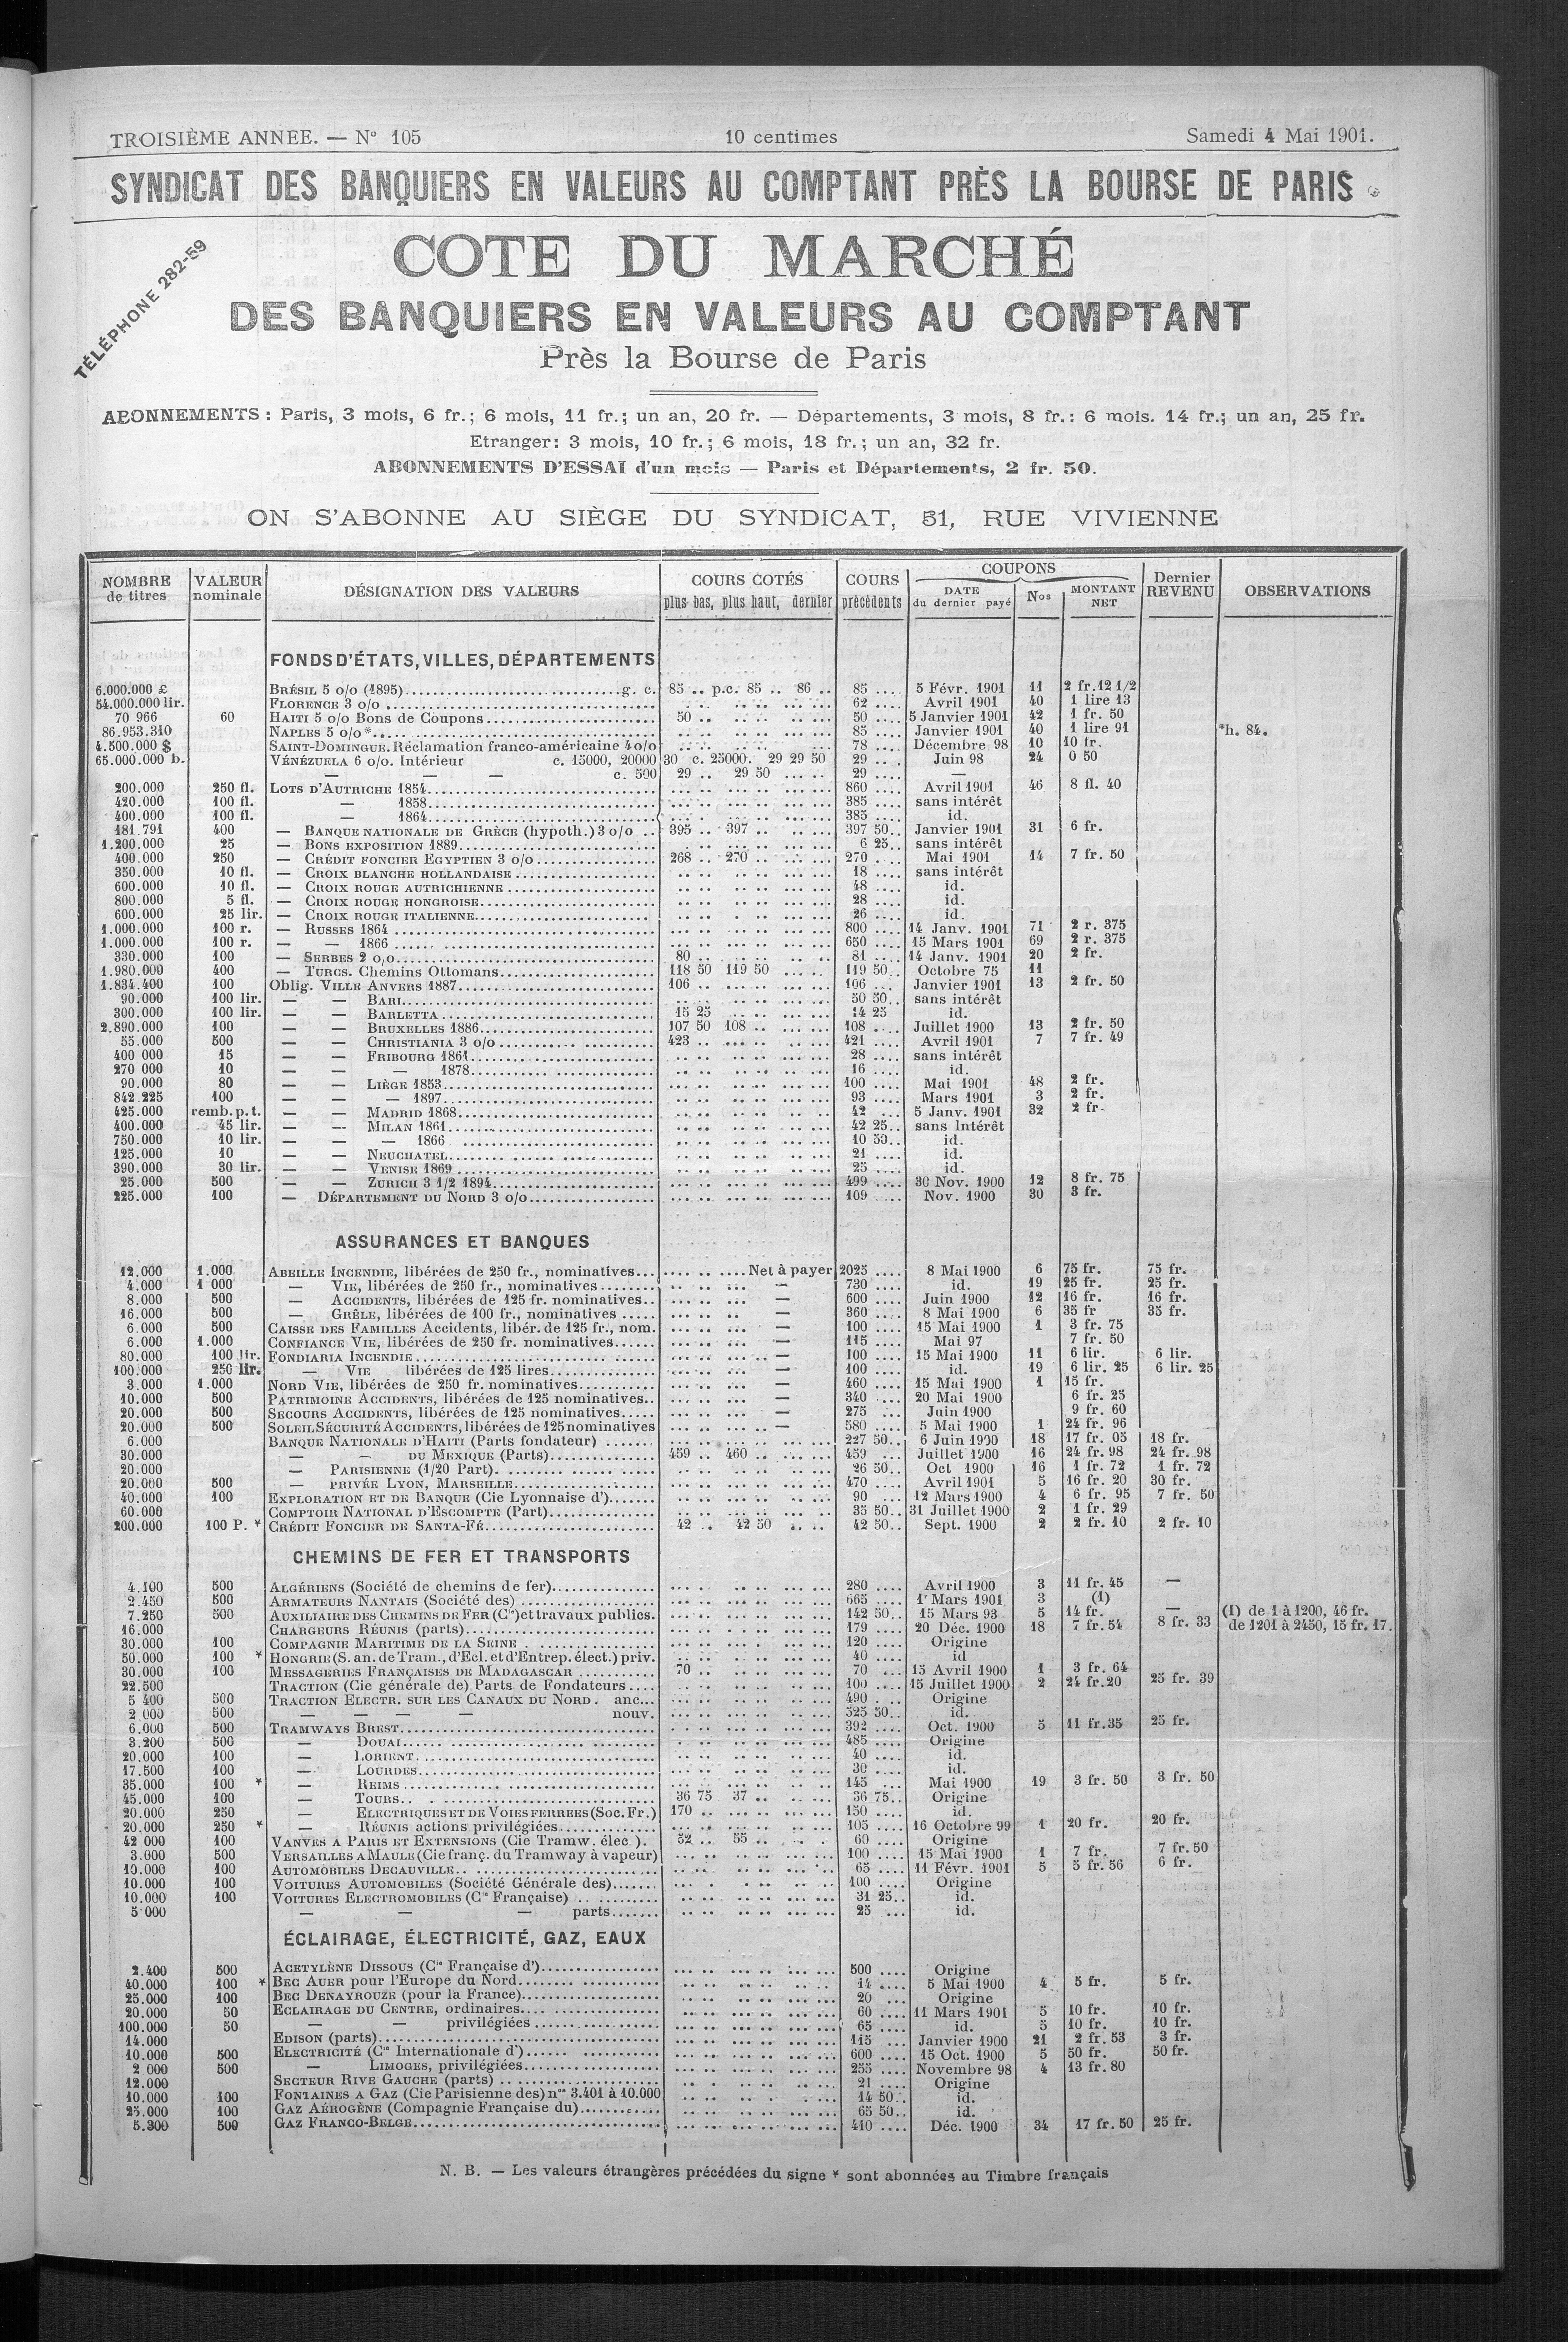 TROISIÈME ANNEE. — N° 105 10 centimes Samedi 4 Mai 1901.
SYNDICAT DES BANQUIERS EN VALEURS AU COMPTANT PRÈS LA BOURSE DE PARIS
TÉLÉPHONE 282-59
COTE DU MARCHÉ
DES BANQUIERS EN VALEURS AU COMPTANT
Près la Bourse de Paris
ABONNEMENTS : Paris, 3 mois, 6 fr.; 6 mois, 11 fr.; un an, 20 fr. — Départements, 3 mois, 8 fr.: 6 mois. 14 fr.; un an, 25 fr.
Etranger: 3 mois, 10 fr.; 6 mois, 18 fr.; un an, 32 fr.
ABONNEMENTS D'ESSAI d'un mois — Paris et Départements, 2 fr. 50.
ON S'ABONNE AU SIÈGE DU SYNDICAT, 51, RUE VIVIENNE
NOMBRE de titres VALEUR nominale DÉSIGNATION DES VALEURS COURS COTÉS plus bas, plus haut, dernier COURS précédents COUPONS DATE du dernier payé Nos MONTANT NET Dernier REVENU OBSERVATIONS
FONDS D'ÉTATS, VILLES, DÉPARTEMENTS
6.000.000 £ BRÉSIL 5 o/o (1895) g. c. 85 .. p.c. 85 .. 86 .. 85 .... 5 Févr. 1901 11 2 fr.12 1/2
54.000.000 lir. FLORENCE 3 o/o 62 .... Avril 1901 40 1 lire 13
70 966 60 HAITI 5 o/o Bons de Coupons 50 .. 50 .... 5 Janvier 1901 42 1 fr. 50
86.953.310 NAPLES 5 o/o* 85 .... Janvier 1901 40 1 lire 91 *h. 84.
4.500.000 $ SAINT-DOMINGUE. Réclamation franco-américaine 4 o/o 78 .... Décembre 98 10 10 fr.
65.000.000 b. VÉNÉZUELA 6 o/o. Intérieur c. 15000, 20000 30 c. 25000. 29 29 50 29 .... Juin 98 24 0 50
— — — c. 500 29 .. 29 50 29 .... —
200.000 250 fl. LOTS D'AUTRICHE 1854 860 .... Avril 1901 46 8 fl. 40
420.000 100 fl. — 1858 385 .... sans intérêt
400.000 100 fl. — 1864 385 .... id.
181.791 400 — BANQUE NATIONALE DE GRÈCE (hypoth.) 3 o/o .. 395 .. 397 .. 397 50.. Janvier 1901 31 6 fr.
1.200.000 25 — BONS EXPOSITION 1889 6 25.. sans intérêt
400.000 250 — CRÉDIT FONCIER EGYPTIEN 3 o/o 268 .. 270 .. 270 .... Mai 1901 14 7 fr. 50
350.000 10 fl. — CROIX BLANCHE HOLLANDAISE 18 .... sans intérêt
600.000 10 fl. — CROIX ROUGE AUTRICHIENNE 48 .... id.
800.000 5 fl. — CROIX ROUGE HONGROISE 28 .... id.
600.000 25 lir. — CROIX ROUGE ITALIENNE 26 .... id.
1.000.000 100 r. — RUSSES 1864 800 .... 14 Janv. 1901 71 2 r. 375
1.000.000 100 r. — — 1866 650 .... 15 Mars 1901 69 2 r. 375
330.000 100 — SERBES 2 o/o 80 .. 81 .... 14 Janv. 1901 20 2 fr.
1.980.000 400 — TURCS. Chemins Ottomans 118 50 119 50 119 50.. Octobre 75 11
1.834.400 100 Oblig. VILLE ANVERS 1887 106 .. 106 ... Janvier 1901 13 2 fr. 50
90.000 100 lir. — — BARI 50 50.. sans intérêt
300.000 100 lir. — — BARLETTA 15 25 14 25 id.
2.890.000 100 — — BRUXELLES 1886 107 50 108 .. 108 .... Juillet 1900 13 2 fr. 50
55.000 500 — — CHRISTIANIA 3 o/o 423 .. 421 .... Avril 1901 7 7 fr. 49
400 000 15 — — FRIBOURG 1861 28 .... sans intérêt
270 000 10 — — — 1878 16 .... id.
90.000 80 — — LIÈGE 1853 100 .... Mai 1901 48 2 fr.
842.225 100 — — — 1897 93 .... Mars 1901 3 2 fr.
425.000 remb. p. t. — — MADRID 1868 42 ... 5 Janv. 1901 32 2 fr.
400.000 45 lir. — — MILAN 1861 42 25.. sans Intérêt
750.000 10 lir. — — — 1866 10 50.. id.
125.000 10 — — NEUCHATEL 21 .... id.
390.000 30 lir. — — VENISE 1869 25 .... id.
25.000 500 — — ZURICH 3 1/2 1894 499 .... 30 Nov. 1900 12 8 fr. 75
225.000 100 — DÉPARTEMENT DU NORD 3 o/o 109 .... Nov. 1900 30 3 fr.
ASSURANCES ET BANQUES
12.000 1.000 ABEILLE INCENDIE, libérées de 250 fr., nominatives... Net à payer 2025 .... 8 Mai 1900 6 75 fr. 75 fr.
4.000 1 000 — VIE, libérées de 250 fr., nominatives — 730 .... id. 19 25 fr. 25 fr.
8.000 500 — ACCIDENTS, libérées de 125 fr. nominatives.. — 600 .... Juin 1900 12 16 fr. 16 fr.
16.000 500 — GRÊLE, libérées de 100 fr., nominatives — 360 .... 8 Mai 1900 6 35 fr 35 fr.
6.000 500 CAISSE DES FAMILLES Accidents, libér. de 125 fr., nom. — 100 .... 15 Mai 1900 1 3 fr. 75
6.000 1.000 CONFIANCE VIE, libérées de 250 fr. nominatives — 115 .... Mai 97 7 fr. 50
80.000 100 lir. FONDIARIA INCENDIE — 100 .... 15 Mai 1900 11 6 lir. 6 lir.
100.000 250 lir. — VIE libérées de 125 lires — 100 .... id. 19 6 lir. 25 6 lir. 25
3.000 1.000 NORD VIE, libérées de 250 fr. nominatives — 460 .... 15 Mai 1900 1 15 fr.
10.000 500 PATRIMOINE ACCIDENTS, libérées de 125 nominatives.. — 340 .... 20 Mai 1900 6 fr. 25
20.000 500 SECOURS ACCIDENTS, libérées de 125 nominatives — 275 ... Juin 1900 9 fr. 60
20.000 500 SOLEIL SÉCURITÉ ACCIDENTS, libérées de 125 nominatives — 580 .... 5 Mai 1900 1 24 fr. 96
6.000 BANQUE NATIONALE D'HAITI (Parts fondateur) 227 50.. 6 Juin 1900 18 17 fr. 05 18 fr.
30.000 — — DU MEXIQUE (Parts) 459 .. 460 .. 459 ... Juillet 1900 16 24 fr. 98 24 fr. 98
20.000 — PARISIENNE (1/20 Part) 26 50.. Oct 1900 16 1 fr. 72 1 fr. 72
20.000 500 — PRIVÉE LYON, MARSEILLE 470 .... Avril 1901 5 16 fr. 20 30 fr.
40.000 100 EXPLORATION ET DE BANQUE (Cie Lyonnaise d') 90 ... 12 Mars 1900 4 6 fr. 95 7 fr. 50
60.000 COMPTOIR NATIONAL D'ESCOMPTE (Part) 35 50.. 31 Juillet 1900 2 1 fr. 29
200.000 100 P. * CRÉDIT FONCIER DE SANTA-FÉ 42 .. 42 50 42 50.. Sept. 1900 2 2 fr. 10 2 fr. 10
CHEMINS DE FER ET TRANSPORTS
4.100 500 ALGÉRIENS (Société de chemins de fer) 280 .... Avril 1900 3 11 fr. 45 —
2.450 500 ARMATEURS NANTAIS (Société des) 665 .... 1r Mars 1901 3 (1)
7.250 500 AUXILIAIRE DES CHEMINS DE FER (Cie) et travaux publics. 142 50.. 15 Mars 93 5 14 fr. — (1) de 1 à 1200, 46 fr.
16.000 CHARGEURS RÉUNIS (parts) 179 .... 20 Déc. 1900 18 7 fr. 54 8 fr. 33 de 1201 à 2450, 15 fr. 17.
30.000 100 COMPAGNIE MARITIME DE LA SEINE 120 .... Origine
50.000 100 * HONGRIE (S. an. de Tram., d'Ecl. et d'Entrep. élect.) priv. 40 .... id
30.000 100 MESSAGERIES FRANÇAISES DE MADAGASCAR 70 .. 70 ... 15 Avril 1900 1 3 fr. 64
22.500 TRACTION (Cie générale de) Parts de Fondateurs 100 .... 15 Juillet 1900 2 24 fr.20 25 fr. 39
5 400 500 TRACTION ELECTR. SUR LES CANAUX DU NORD. anc... 490 ... Origine
2 000 500 — — — — nouv. 525 50.. id.
6.000 500 TRAMWAYS BREST 392 .... Oct. 1900 5 11 fr.35 25 fr.
3.200 500 — DOUAI 485 .... Origine
20.000 100 — LORIENT 40 .... id.
17.500 100 — LOURDES 30 .... id.
35.000 100 * — REIMS 145 ... Mai 1900 19 3 fr. 50 3 fr. 50
45.000 100 — TOURS 36 75 37 .. 36 75.. Origine
20.000 250 — ELECTRIQUES ET DE VOIES FERREES (Soc. Fr.) 170 .. 150 .... id.
20.000 250 * — RÉUNIS actions privilégiées 105 .... 16 Octobre 99 1 20 fr. 20 fr.
42 000 100 VANVES A PARIS ET EXTENSIONS (Cie Tramw. élec ). 52 .. 55 .. 60 .... Origine
3.600 500 VERSAILLES A MAULE (Cie franç. du Tramway à vapeur) 100 .... 15 Mai 1900 1 7 fr. 7 fr. 50
10.000 100 AUTOMOBILES DECAUVILLE 65 .... 11 Févr. 1901 5 5 fr. 56 6 fr.
10.000 100 VOITURES AUTOMOBILES (Société Générale des) 100 .... Origine
10.000 100 VOITURES ELECTROMOBILES (Cie Française) 31 25.. id.
5 000 — — — parts 25 ... id.
ÉCLAIRAGE, ÉLECTRICITÉ, GAZ, EAUX
2.400 500 ACETYLÈNE DISSOUS (Cie Française d') 500 .... Origine
40.000 100 * BEC AUER pour l'Europe du Nord 14 .... 5 Mai 1900 4 5 fr. 5 fr.
25.000 100 BEC DENAYROUZE (pour la France) 20 ... Origine
20.000 50 ECLAIRAGE DU CENTRE, ordinaires 60 .... 11 Mars 1901 5 10 fr. 10 fr.
100.000 50 — — privilégiées 65 .... id. 5 10 fr. 10 fr.
14.000 EDISON (parts) 115 ... Janvier 1900 21 2 fr. 53 3 fr.
10.000 500 ELECTRICITÉ (Cie Internationale d') 600 .... 15 Oct. 1900 5 50 fr. 50 fr.
2 000 500 — LIMOGES, privilégiées 255 .... Novembre 98 4 13 fr. 80
12.000 SECTEUR RIVE GAUCHE (parts) 21 .... Origine
10.000 100 FONTAINES A GAZ (Cie Parisienne des) nos 3.401 à 10.000 14 50 .. id.
25.000 100 GAZ AÉROGÈNE (Compagnie Française du) 65 50.. id.
5.300 500 GAZ FRANCO-BELGE 410 .... Déc. 1900 34 17 fr. 50 25 fr.
N. B. — Les valeurs étrangères précédées du signe * sont abonnées au Timbre français